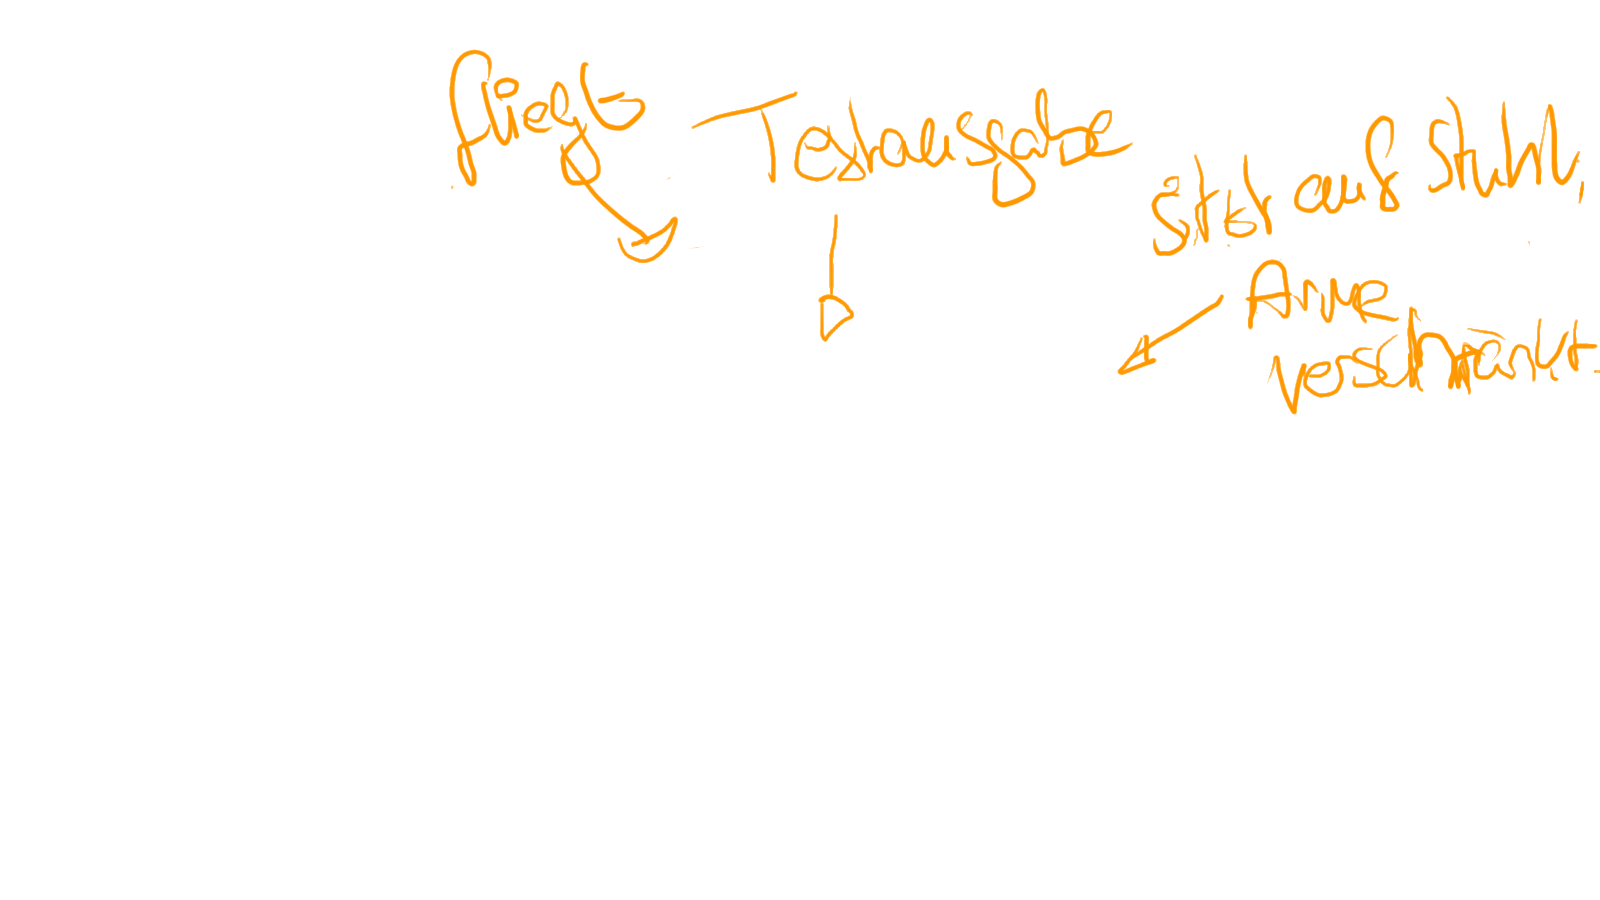 fliegt
Textausgabe
sitzt auf Stuhl,
Arme
verschränkt